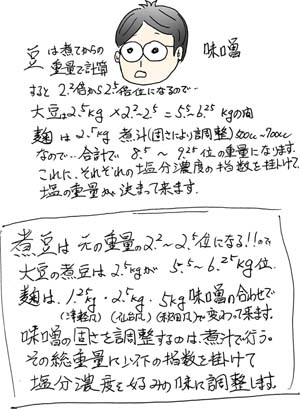 豆は煮てからの重量で計算 味噌
すると2.2倍から2.5倍位になるので…
大豆は2.5kg×2.2~2.5=5.5~6.25kgの間
麹は2.5kg 煮汁(固さにより調整)500cc~700cc
なので…合計で8.5~9.25位の重量になります。
これに、それぞれの塩分濃度の指数を掛けて
塩の重量が決まって来ます。
煮豆は元の重量の2.2~2.5位になる!!ので
大豆の煮豆は2.5kgが5.5~6.25kg位。
麹は、1.25kg・2.5kg・5kg味噌の合わせで
(津軽風)(仙台風)(秋田風)が変わって来ます。
味噌の固さを調整するのは、煮汁で行う。
その総重量に以下の指数を掛けて
塩分濃度を好みの味に調整します。